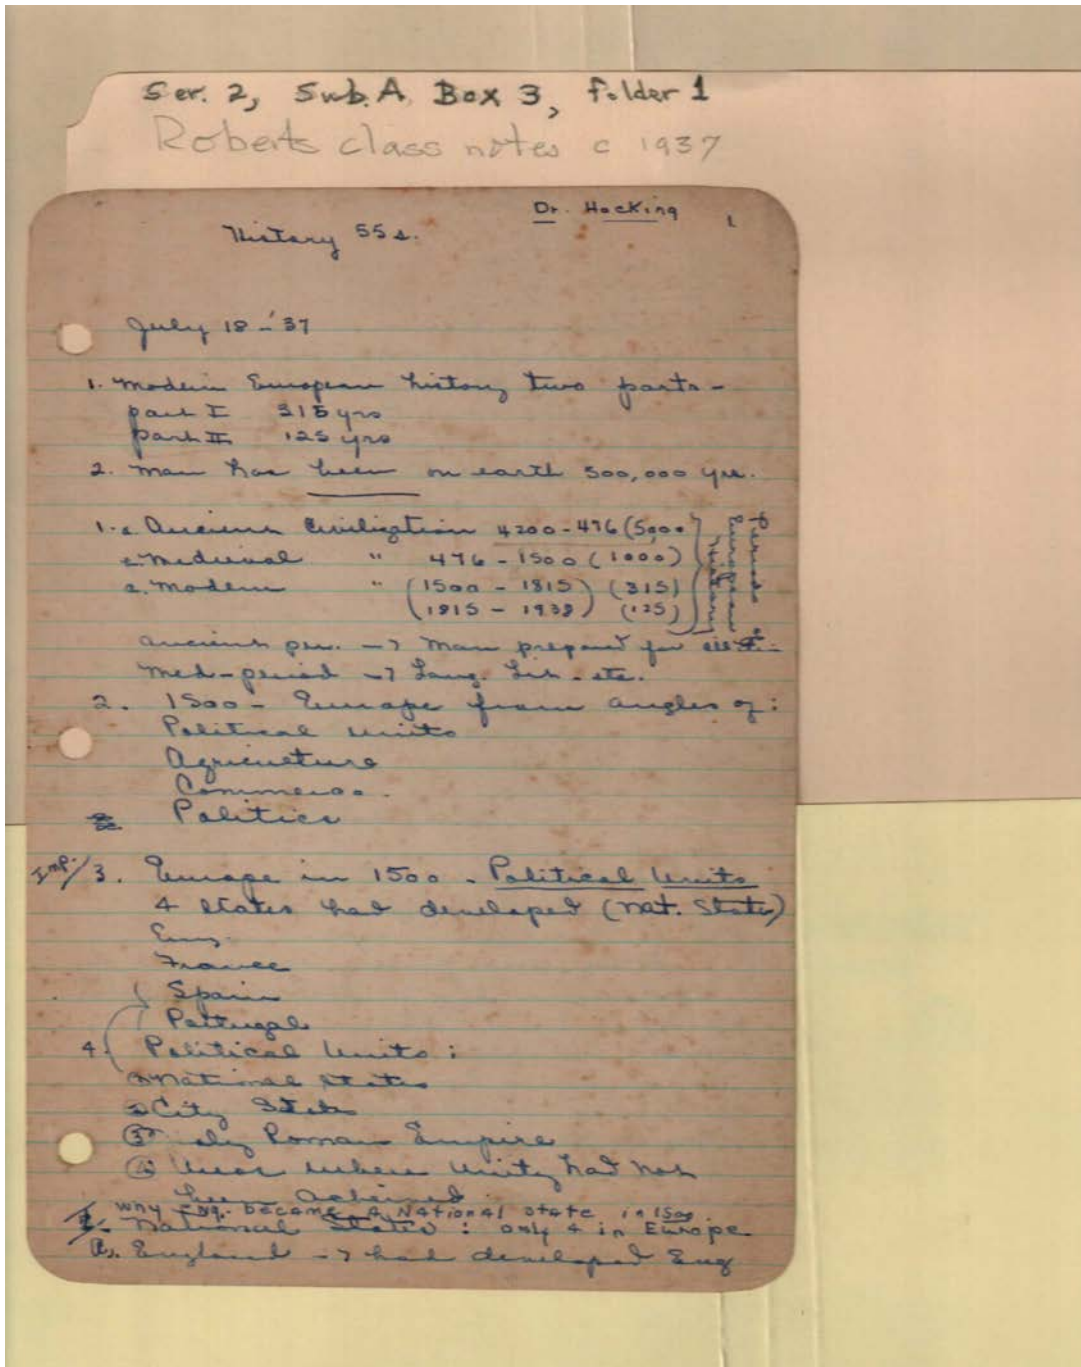 Ser. 2, Sub. A, Box 3, Folder 1
Roberts class notes c 1937
Dr. Hocking 1
History 55s.
July 18-'37
1. Modern European history two parts -
part I 315 yrs
part II 125 yrs
2. Man has been on earth 500,000 yrs.
1. Ancient Civilization 4200-476 (5,000
Medieval " 476-1500 (1000)
Modern " (1500-1815) (315)
(1815-1938) (125)
Periods of
European
History
Ancient per. -> Man prepared for
Med-period -> Lang. Lit. etc.
2. 1500 - Europe from angles of:
Political Units
Agriculture
Commerce.
Politics
Imp./3. Europe in 1500. Political Units
4 States had developed (Nat. States)
Eng.
France
Spain
Portugal
4. Political Units:
National States
2 City States
③ Holy Roman Empire
④ Areas where Unity had not
been Achieved
Why Eng. became a National State in 1500.
National States: only 4 in Europe
a. England -> had developed Eng